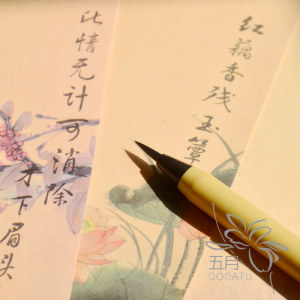 红藕香残玉簟
此情无计可消除
才下眉头
五月
GOGATU